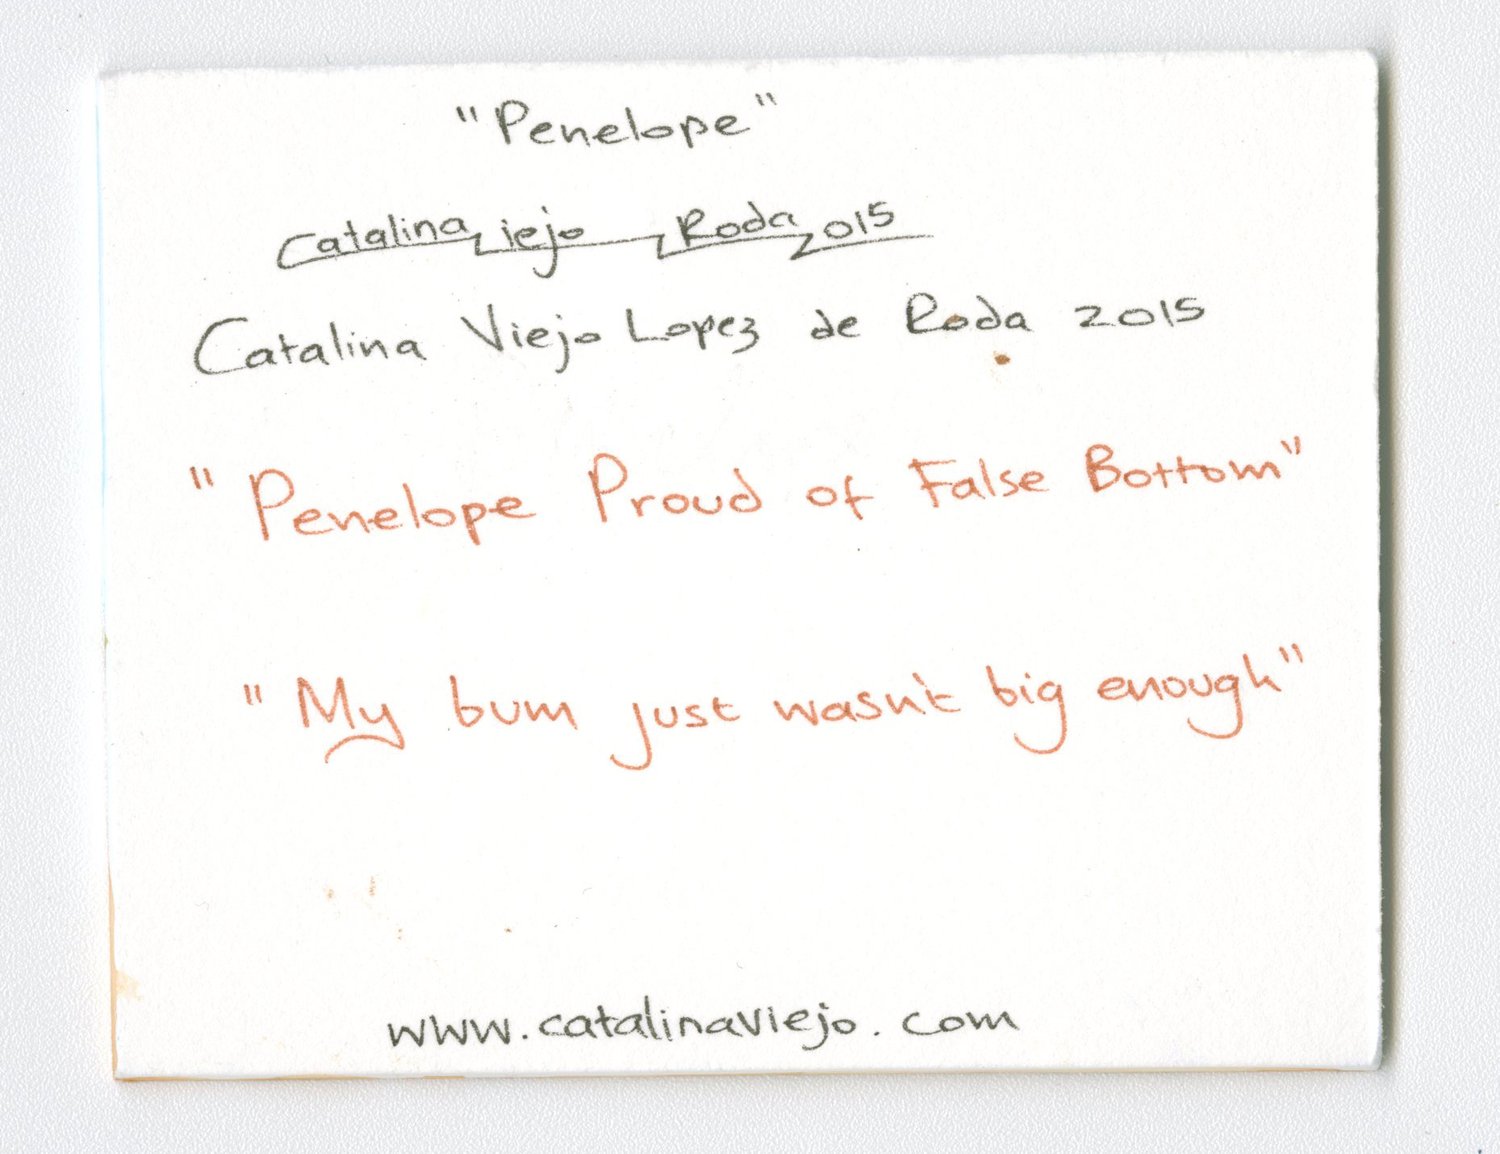 "Penelope"
Catalina Viejo Roda 2015
Catalina Viejo Lopez de Roda 2015
"Penelope Proud of False Bottom"
"My bum just wasn't big enough"
www.catalinaviejo.com